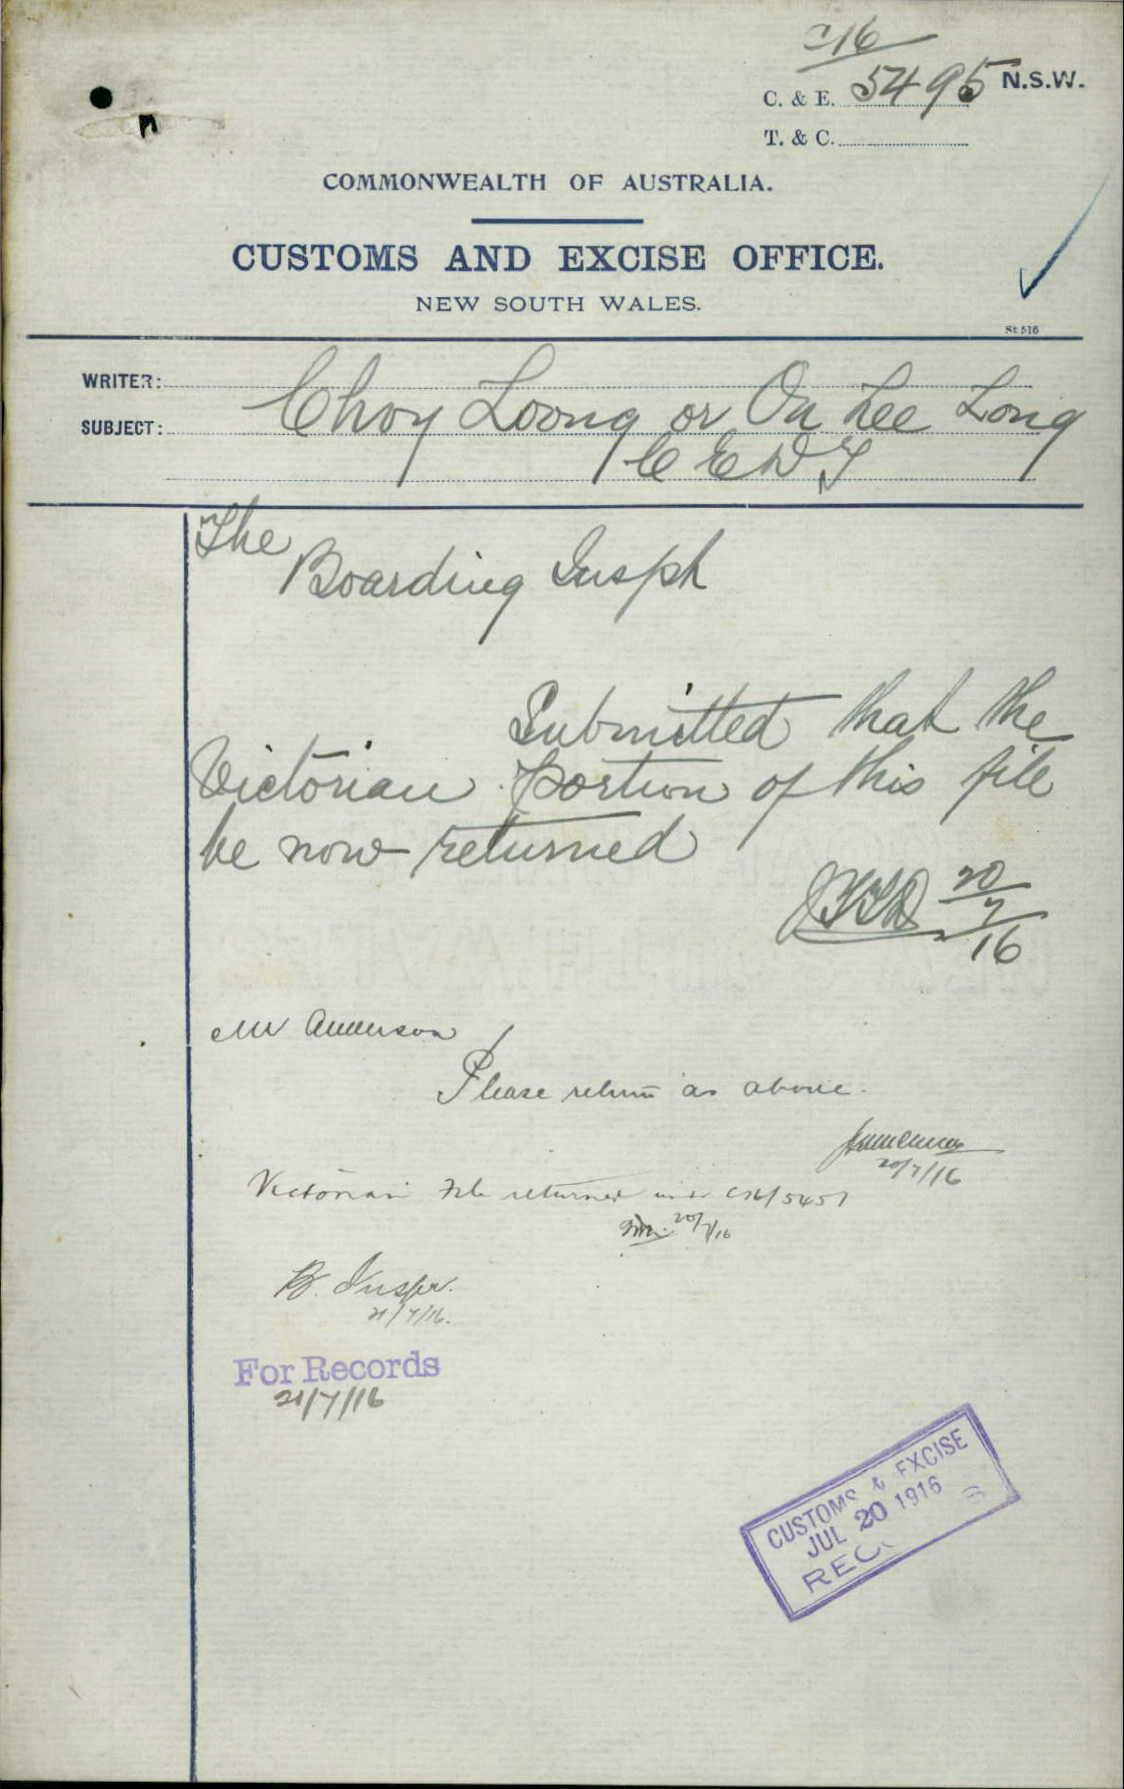 C16
C. & E. 5495 N.S.W.
T. & C.
COMMONWEALTH OF AUSTRALIA.
CUSTOMS AND EXCISE OFFICE.
NEW SOUTH WALES.
St 516
WRITER:
SUBJECT: Choy Loong or On Lee Long
C E D T
The
Boarding Inspr
Submitted that the
Victorian portion of this file
be now returned
20
7
16
Mr Anderson
Please return as above.
20/7/16
Victorian File returned C16/5451
20/7/16
B. Inspr.
21/7/16.
For Records
21/7/16
CUSTOMS & EXCISE
JUL 20 1916